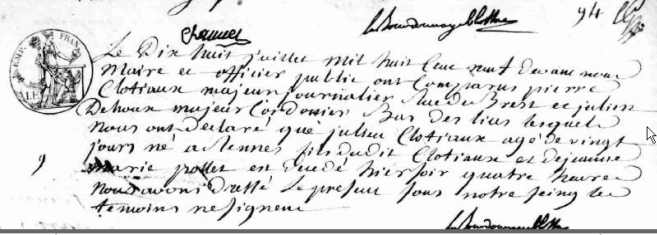 94
Le Dix huit juillet mil huit cent neuf devant nous
Maire et officier public ont comparus pierre
Clotiaux majeur journalier Rue de Brest et julien
Dehoux majeur Cordonier Bas des lices lesquels
nous ont declaré que julien Clotiaux agé de vingt
jours né a Rennes fils dudit Clotiaux et de jeanne
9 marie pottet en decedé hier soir quatre heures
nous avons dressé le present sous notre seing les
temoins ne signent